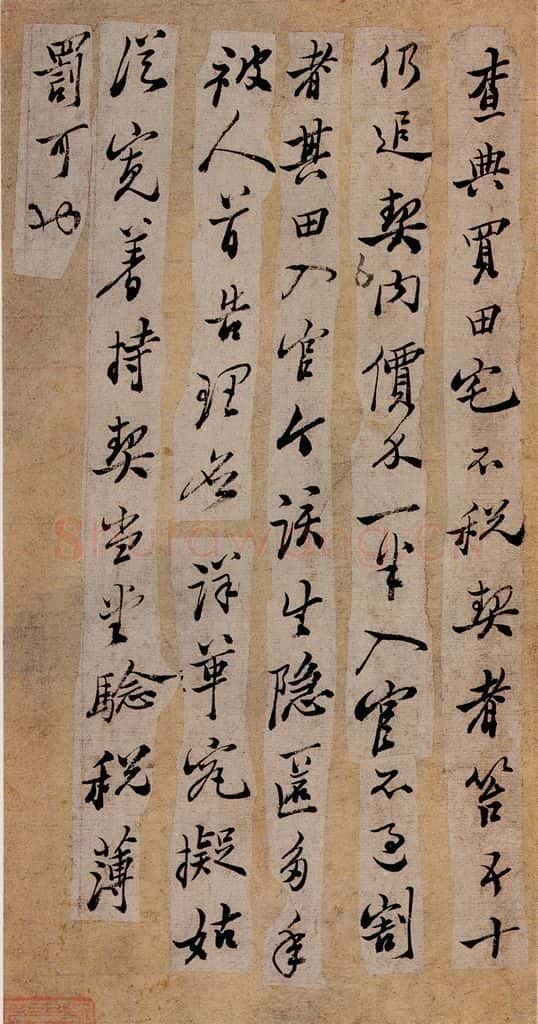 查典買田宅不税契者笞五十
仍追契内價一半入官不過割
者其田入官今該生隱匿多年
被人首告理應詳革究擬姑
從寬着持契當堂驗税薄
罰可也